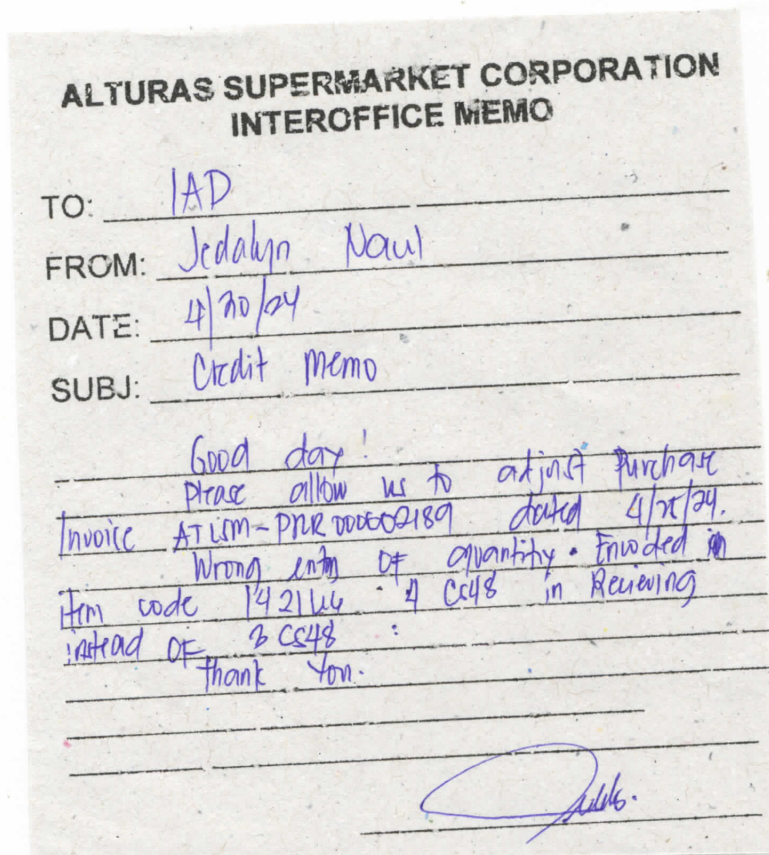 ALTURAS SUPERMARKET CORPORATION
INTEROFFICE MEMO
TO: IAD
FROM: Jedalyn Naul
DATE: 4/30/24
SUBJ: Credit Memo
Good day!
Please allow us to adjust Purchase
Invoice dated
Wrong entry OF quantity. Encoded in
Item code 4 CS48 in Recieving
instead OF 3 CS48
Thank You.